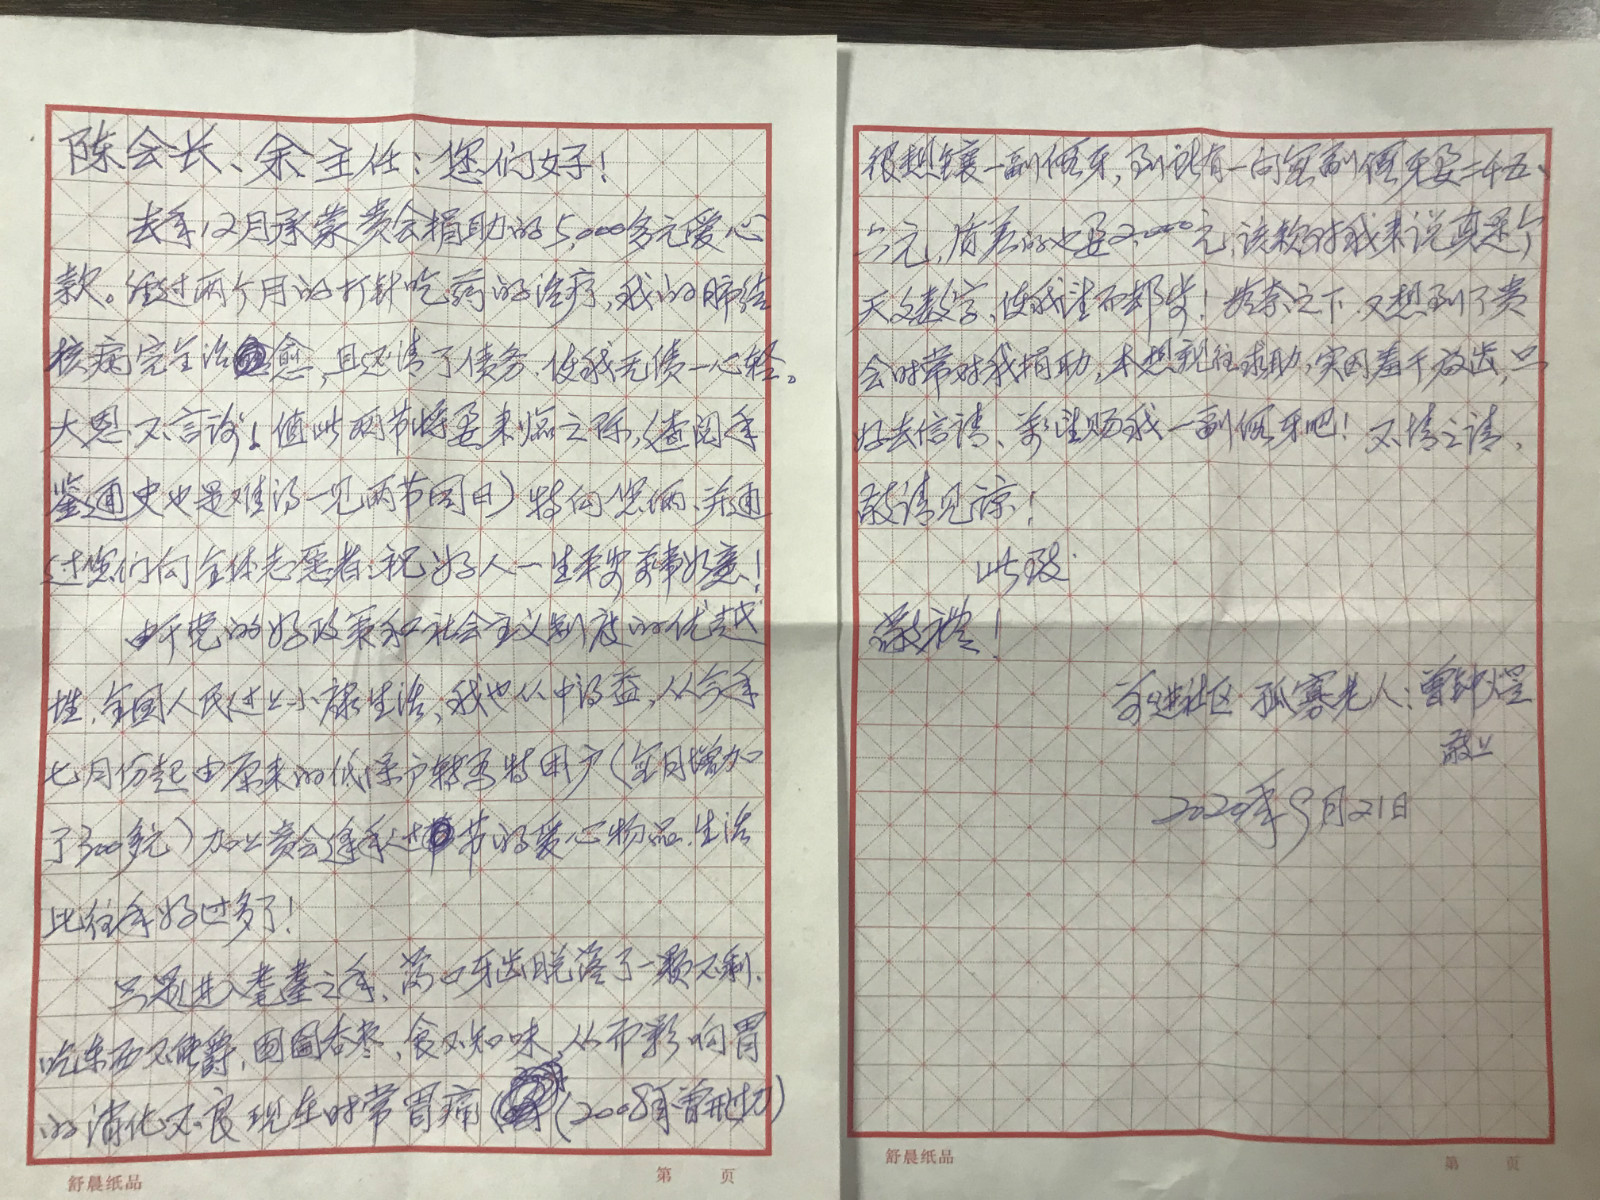 陈会长、余主任：您们好！
去年12月承蒙贵会捐助的5,000多元爱心
款。经过两个月的打针吃药的治疗，我的肺结
核病完全治愈，且还清了债务，使我无债一心轻。
大恩不言谢！值此两节将要来临之际，（查阅年
鉴通史也是难得一见两节同日）特向您俩、并通
过您们向全体志愿者：祝好人一生平安万事如意！
由于党的好政策和社会主义制度的优越
性，全国人民过上小康生活，我也从中得益，从今年
七月份起由原来的低保户转为特困户（每月增加
了300多元）加上贵会逢年过节的爱心物品，生活
比往年好过多了！
只是进入耄耋之年，满口牙齿脱落了一颗不剩，
吃东西不能嚼，囫囵吞枣，食不知味，从而影响胃
的消化不良现在时常胃痛（2008年曾开过刀）
很想镶一副假牙，到社有一问每副假牙要二千五、
六元，质差的也要2.000元，该款对我来说真是个
天文数字，使我望而却步！无奈之下，又想到了贵
会时常对我捐助，本想亲往求助，实因羞于启齿，只
好去信请、希望赐我一副假牙吧！不情之请，
敬请见谅！
此致
敬礼！
前进社区 孤寡老人：曾钟煜
敬上
2020年9月21日
舒晨纸品 第 页
舒晨纸品 第 页